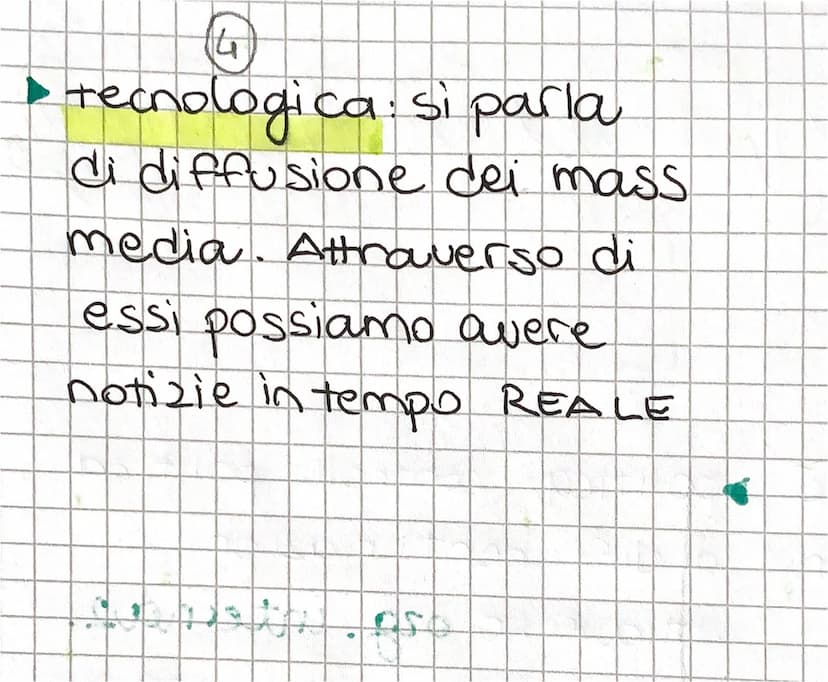 4
tecnologica: si parla
di diffusione dei mass
media. Attraverso di
essi possiamo avere
notizie in tempo REALE